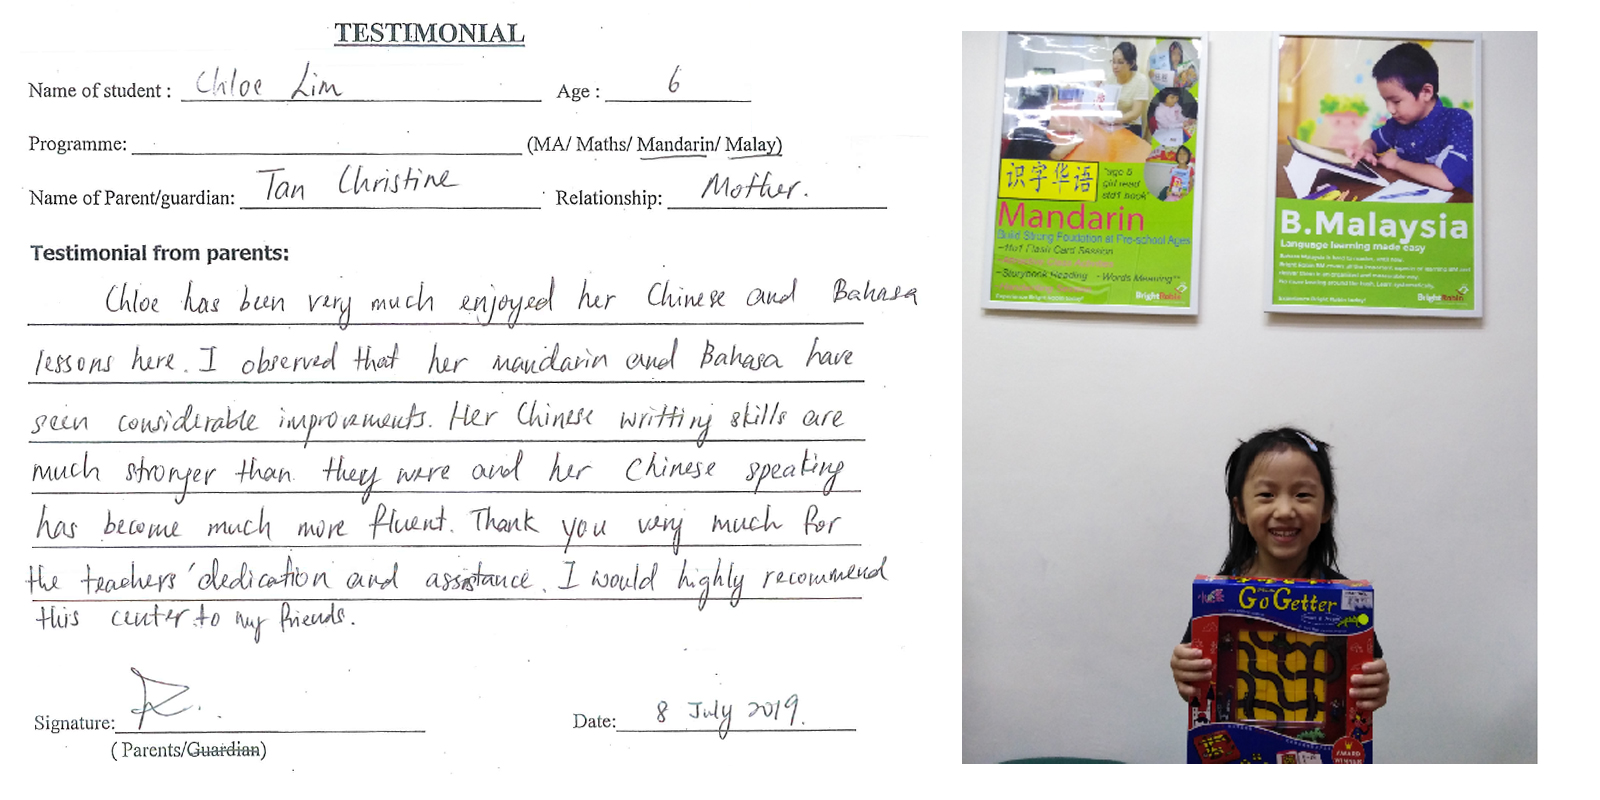 TESTIMONIAL
Name of student : Chloe Lim Age : 6
Programme: (MA/ Maths/ Mandarin/ Malay)
Name of Parent/guardian: Tan Christine Relationship: Mother.
Testimonial from parents:
Chloe has been very much enjoyed her Chinese and Bahasa
lessons here. I observed that her mandarin and Bahasa have
seen considerable improvements. Her Chinese writting skills are
much stronger than they were and her Chinese speaking
has become much more fluent. Thank you very much for
the teachers' dedication and assistance. I would highly recommend
this center to my friends.
Signature:
Date: 8 July 2019.
( Parents/Guardian)
识字华语
"age 5
girl read
std1 book"
Mandarin
Build Strong Foudation at Pre-school Ages
-Storybook Reading -Words Meaning
BrightRobin
B.Malaysia
Language learning made easy
BrightRobin
Go Getter
AWARD
WINNER